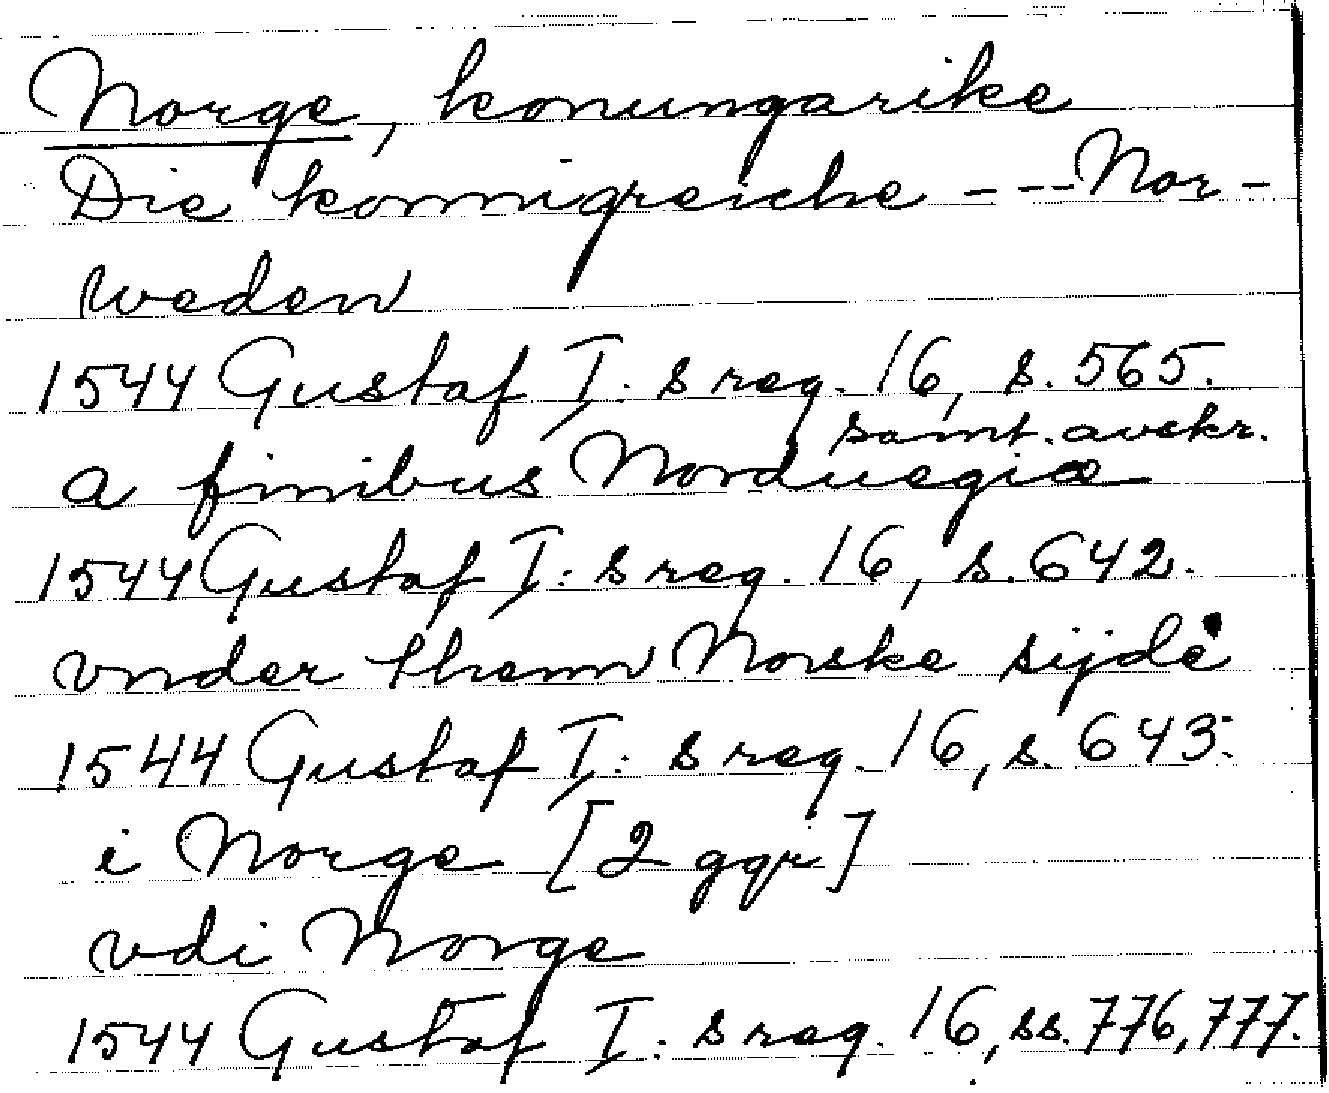 Norge, konungarike
Die konnigreiche - - - Nor-
weden
1544 Gustaf I:s reg. 16, s. 565.
samt. avskr.
a finibus Norduegiæ
1544 Gustaf I:s reg. 16, s. 642.
vnder thenn Norske sijde
1544 Gustaf I:s reg. 16, s. 643.
i Norge [2 ggr]
vdi Norge
1544 Gustaf I:s reg. 16, ss. 776, 777.